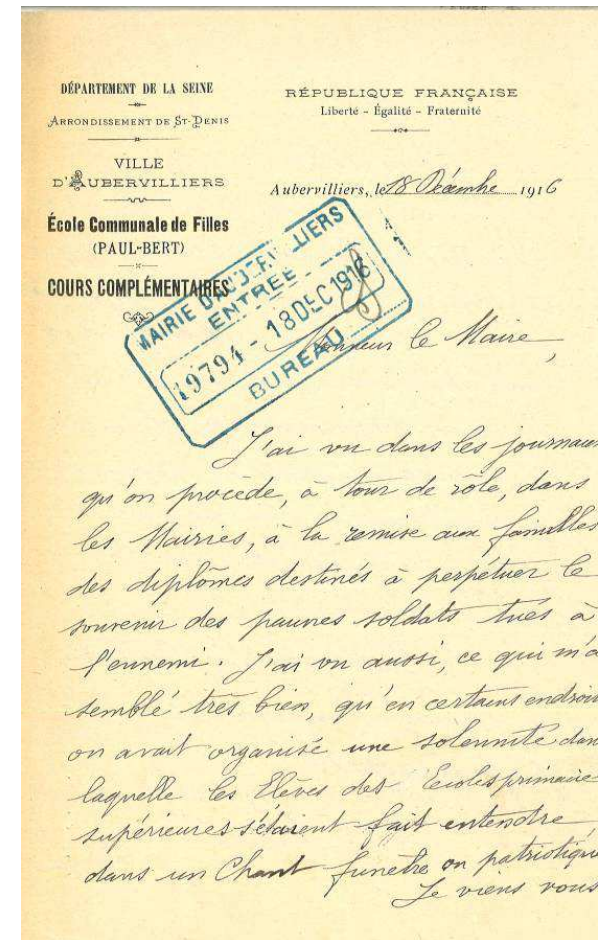 DÉPARTEMENT DE LA SEINE
ARRONDISSEMENT DE ST-DENIS
VILLE
D'AUBERVILLIERS
École Communale de Filles
(PAUL-BERT)
COURS COMPLÉMENTAIRES
RÉPUBLIQUE FRANÇAISE
Liberté - Égalité - Fraternité
Aubervilliers, le 18 Décembre 1916
MAIRIE D'AUBERVILLIERS
ENTRÉE
19794 - 18 DEC 1916
BUREAU
Monsieur le Maire,
J'ai vu dans les journaux
qu'on procède, à tour de rôle, dans
les Mairies, à la remise aux familles
des diplômes destinés à perpétuer le
souvenir des pauvres soldats tués à
l'ennemi. J'ai vu aussi, ce qui m'a
semblé très bien, qu'en certains endroits
on avait organisé une solennité dans
laquelle les Elèves des Ecoles primaires
supérieures s'étaient fait entendre
dans un Chant funèbre ou patriotique
Je viens vous